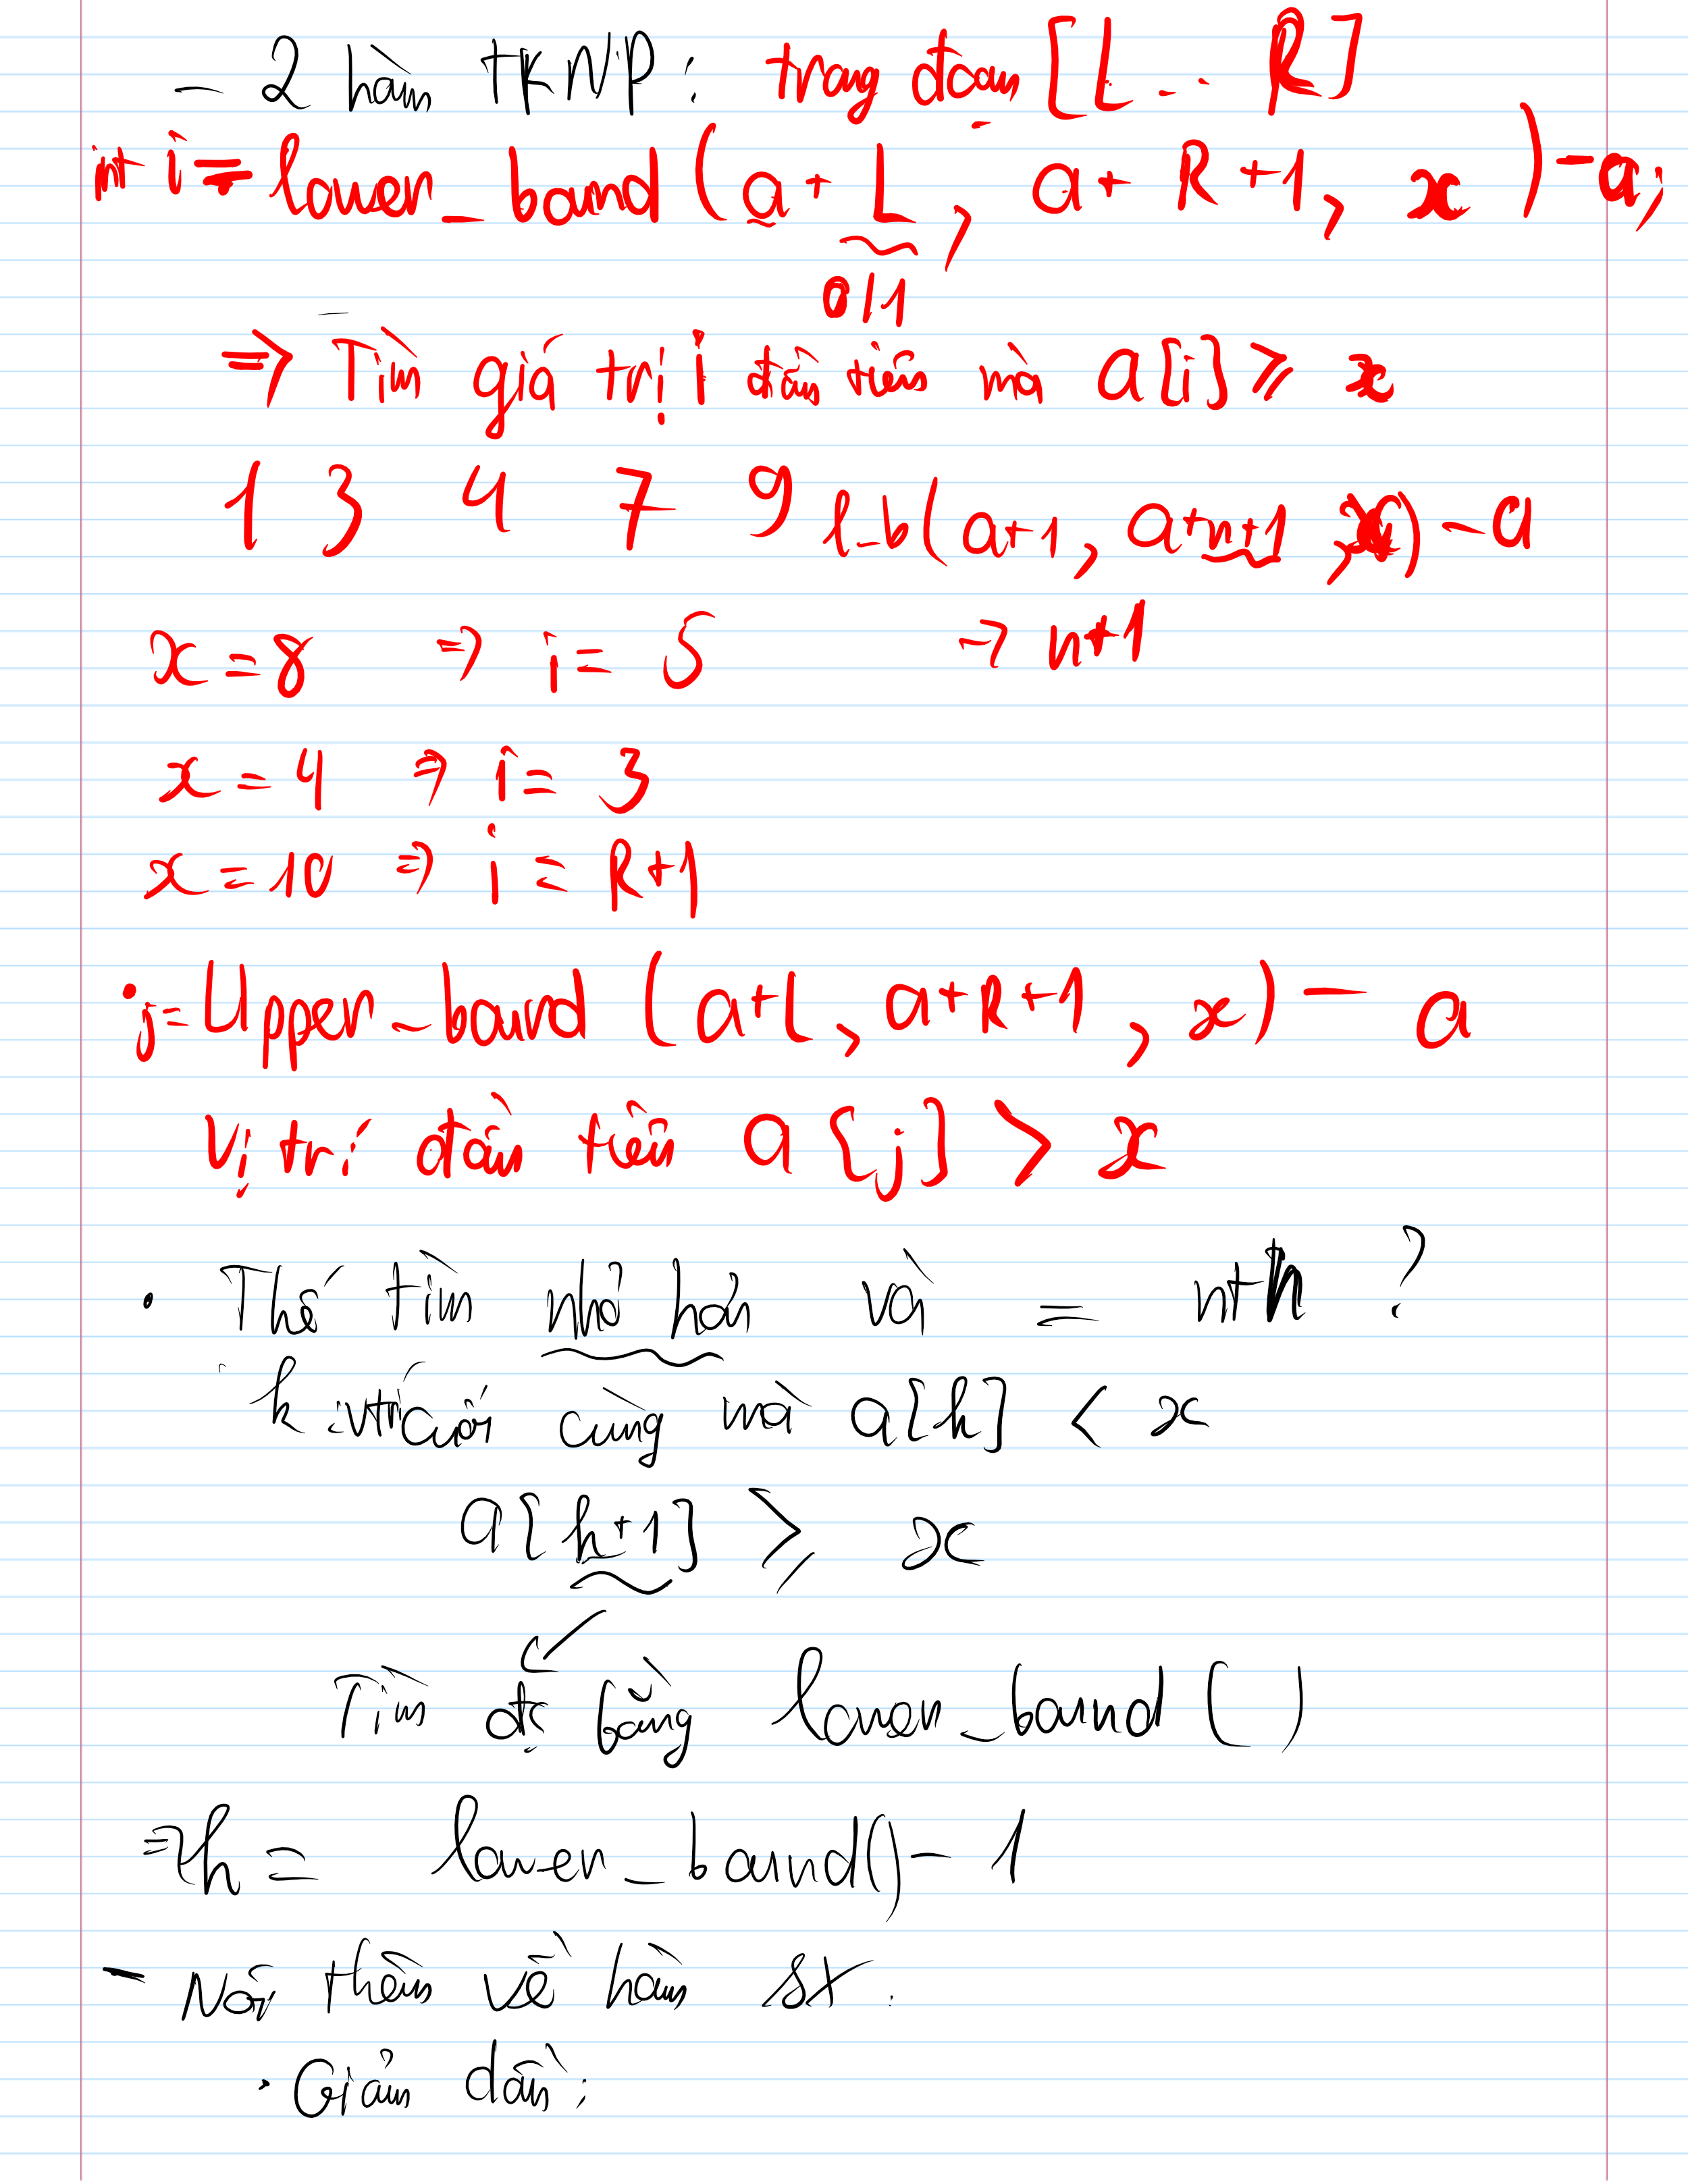 - 2 hàm TKNP: trong đoạn [L .. R]
int i = lower_bound (a + L, a + R + 1, x) - a;
0/1
=> Tìm giá trị i đầu tiên mà a[i] ≥ x
1 3 4 7 9 l_b(a+1, a+n+1, x) - a
x = 8 => i = 5 -> n+1
x = 4 => i = 3
x = 10 => i = R+1
j = Upper_bound (a+L, a+R+1, x) - a
Vị trí đầu tiên a[j] > x
. Thế tìm nhỏ hơn và = ntn ?
k: vtrí cuối cùng mà a[k] < x
a[k+1] ≥ x
Tìm đc bằng lower_bound ()
=> k = lower_bound() - 1
- Nói thêm về hàm sx:
. Giảm dần: